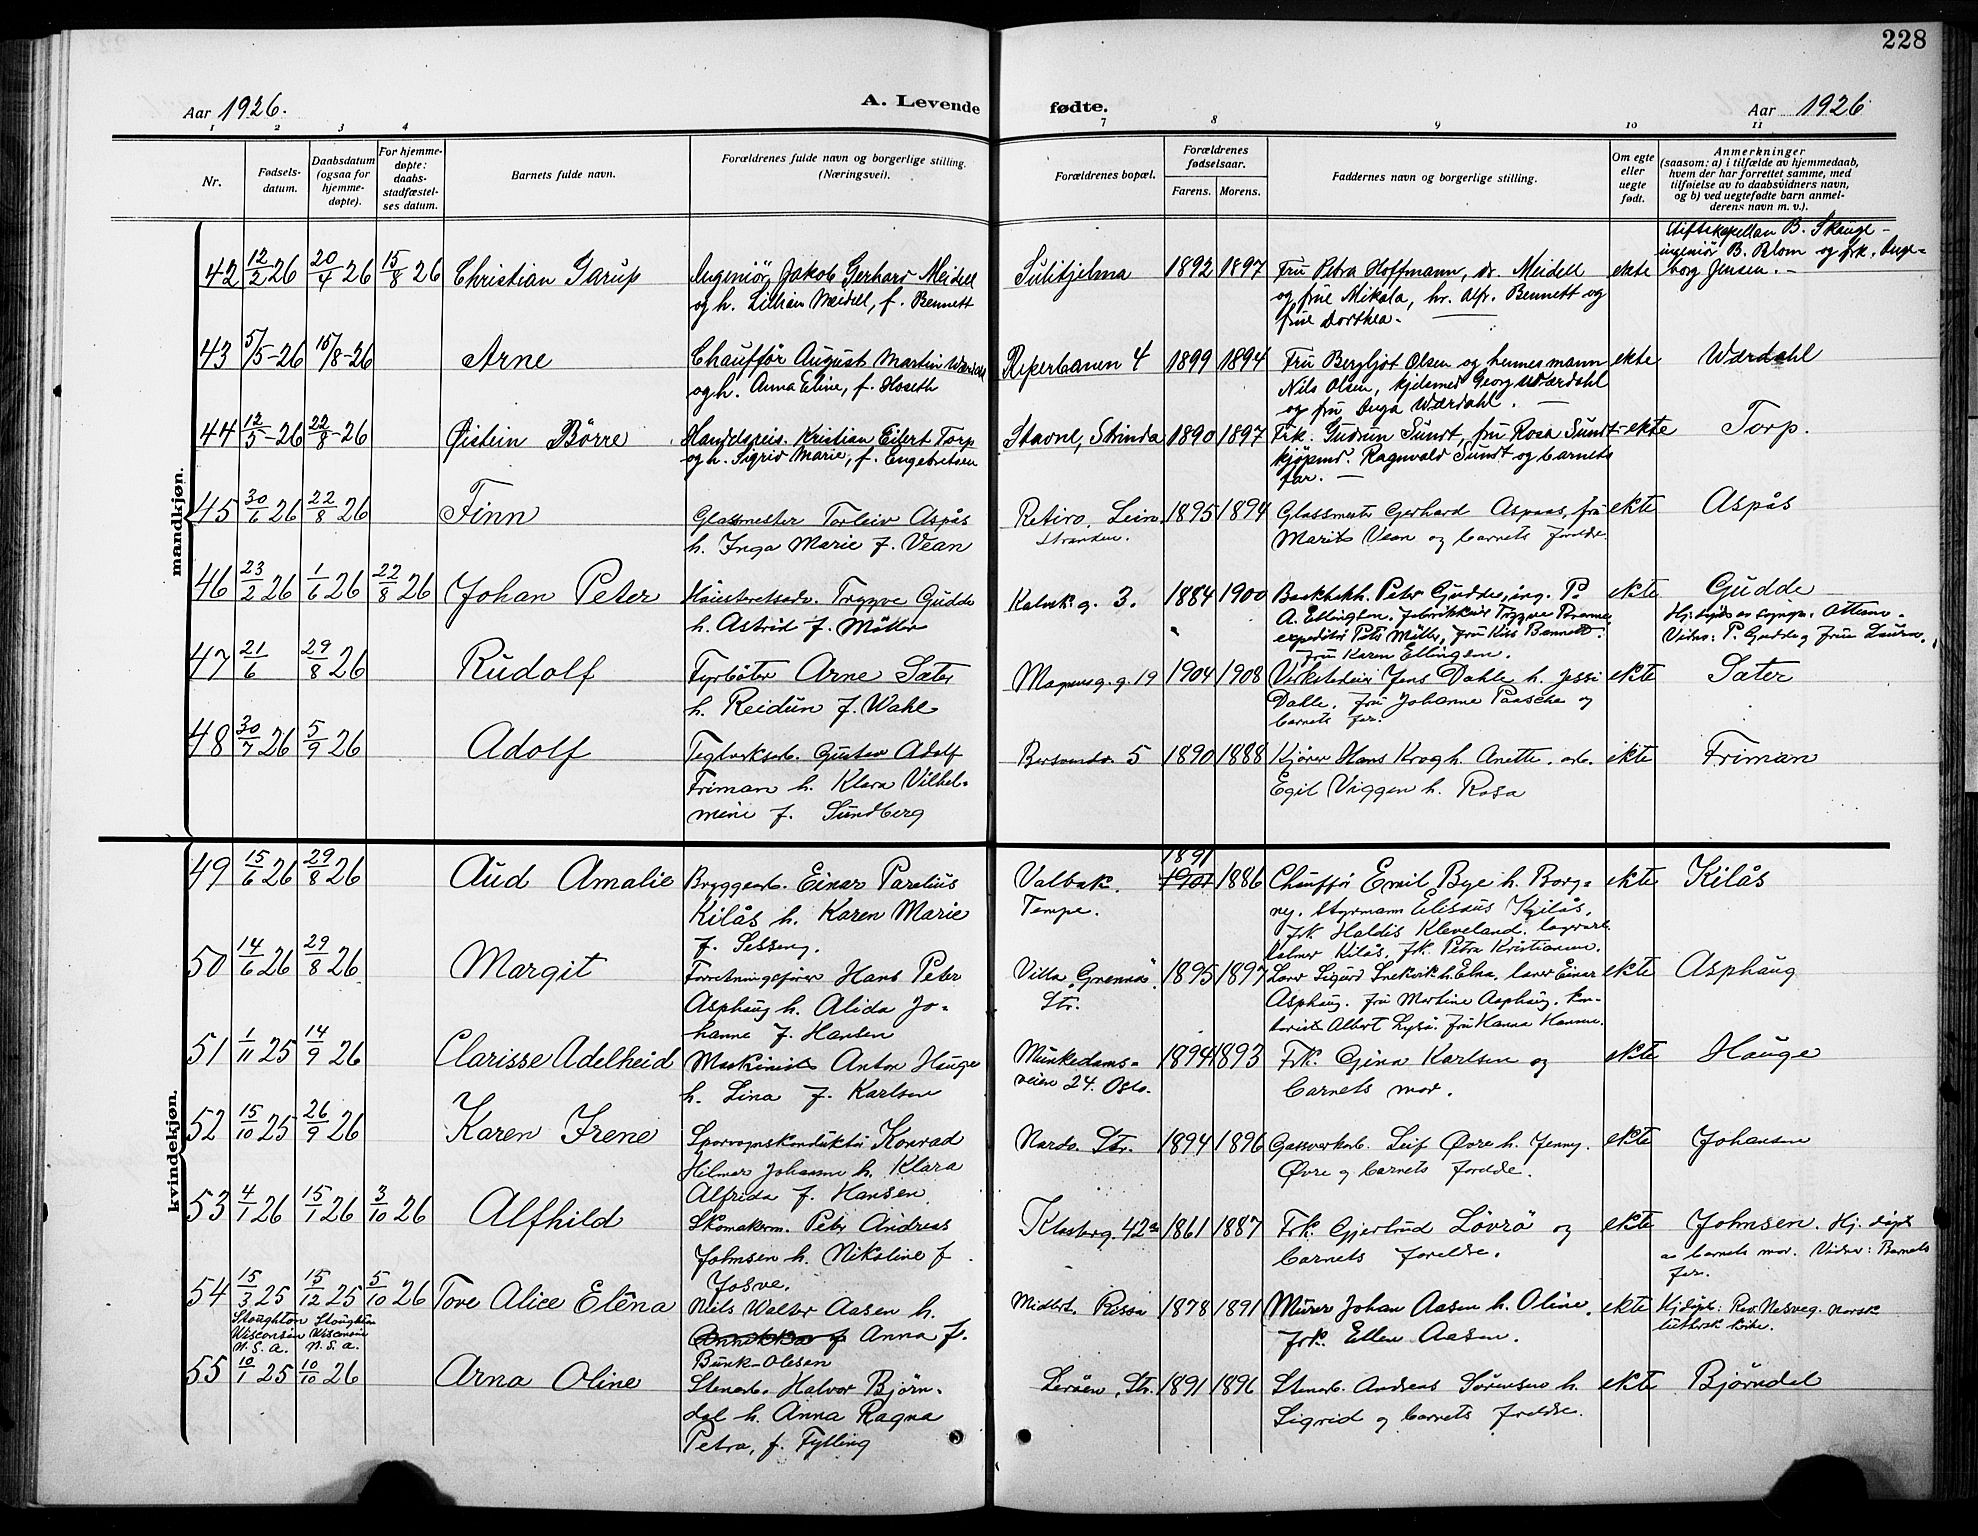 228
Aar 1926.
A. Levende
fødte.
Aar 1926
1 2 3 4
7 8 9 10 11
Nr.
Fødsels-
datum.
Daabsdatum
(ogsaa for
hjemme-
døpte).
For hjemme-
døpte:
daabs-
stadfæstel-
ses datum.
Barnets fulde navn.
Forældrenes fulde navn og borgerlige stilling.
(Næringsvei).
Forældrenes bopæl.
Forældrenes
fødselsaar.
Farens. Morens.
Faddernes navn og borgerlige stilling.
Om egte
eller
uegte
født.
Anmerkninger
(saasom: a) i tilfælde av hjemmedaab,
hvem der har forrettet samme, med
tilføielse av to daabsvidners navn,
og b) ved uegtefødte barn anmel-
derens navn m. v.).
mandkjøn.
42 12/2 26 20/4 26 15/8 26 Christian Garup
Ingeniør Jakob Gerhard Meidell
og h. Lillian Meidell, f. Bennett
Sulitjelma 1892 1897
Fru Petra Hoffmann, dr. Meidell
og frue Mikala, hr. Alfr. Bennett og
frue Dorthea. —
ekte
Stiftskapellan B. Skauge —
ingeniør B. Blom og frk. Inge-
borg Jensen. —
43 5/5-26 15/8-26 Arne
Chauffør August Martin Wærdahl
og h. Anna Eline, f. Hoseth
Reperbanen 4 1899 1894
Fru Bergljot Olsen og hennes mann
Nils Olsen, kjelsmed Georg Wærdahl
og fru Inga Wærdahl. —
ekte Wærdahl
44 12/5-26 22/8-26 Øistein Börre
Handelsreis. Kristian Eilert Torp
og h. Sigrid Marie, f. Engebretsen
Stavne, Strinda 1890 1897
Frk. Gudrun Sundt, fru Rosa Sundt
kjøpmd. Ragnvald Sundt og barnets
far. —
ekte Torp.
45 30/6 26 22/8 26 Finn
Glassmester Torleiv Aspås
h. Inga Marie f. Vean
Retiro, Leira
stranden.
1895 1894
Glassmester Gerhard Aspaas, fru
Marit Vean og barnets foreldre.
ekte Aspås
46 23/2 26 1/6 26 22/8 26 Johan Peter
Høiesteretsadv. Trygve Gudde
h. Astrid f. Möller
Kalvsk. g. 3. 1884 1900
Peter Gudde, ing. P.
A. Ellingsen. fabrikkeier Trygve
expeditør Petr Möller, fru Kiss Bennett.
fru Karen Ellingsen.
ekte Gudde
Vidner: P. Gudde og frue
47 21/6 29/8 26 Rudolf
Fyrbøter Arne Sæter
h. Reidun f. Wahl
Magnusg. g. 19 1904 1908
Verksteder Jens Dahle h. Jessi
Dahle. fru Johanne Paasche og
barnets far.
ekte Sæter
48 30/7 26 5/9 26 Adolf
Teglverksarb. Gustav Adolf
Friman h. Klara Vilhel-
mine f. Sundberg
Bersvendv. 5 1890 1888
Kjører Hans Krogh h. Anette. arb.
Egil Viggen h. Rosa
ekte Friman
kvindekjøn.
49 15/6 26 29/8 26 Aud Amalie
Bryggearb. Einar Parelius
Kilås h. Karen Marie
f. Sesseng.
Valbak.
Tempe.
1891
1901 1886
Chauffør Emil Bye h. Borg-
ny. Styrmann Elisæus Kjilås,
frk. Haldis Kleveland.
Kilås, frk. Petra Kristiansen.
ekte Kilås
50 14/6 26 29/8 26 Margit
Forretningsfører Hans Peter
Asphaug h. Alida Jo-
hanne f. Hansen
Villa „Grennås“.
Str.
1895 1897
Lærer Sigurd Snekvik h. Elna, lærer Einar
Asphaug. fru Martine Asphaug, kon-
torist Albert Lysö. fru Hanna Hansen.
ekte Asphaug
51 1/11 25 14/9 26 Clarisse Adelheid
Maskinist Anton Hauge
h. Lina f. Karlsen
Munkedams-
veien 24. Oslo.
1894 1893
Frk. Gina Karlsen og
barnets mor.
ekte Hauge
52 15/10 25 26/9 26 Karen Irene
Sporvognskonduktør Konrad
Hilmar Johansen h. Klara
Alfrida f. Hansen.
Nardo. Str. 1894 1896
Gassverkarb. Leif Øvre h. Jenny
Øvre og barnets foreldre.
ekte Johansen
53 4/1 26 15/1 26 3/10 26 Alfhild
Skomakerm. Peter Andreas
Johnsen h. Nikoline f
Josve.
Klosterg. 42a 1861 1887
Frk. Gjertrud Lövrö og
barnets foreldre.
ekte Johnsen. Hj. døpt
av barnets mor. Vidner: Barnets
far.
54 15/3 25 15/12 25 5/10 26 Tove Alice Elena
Stoughton Stoughton
Wisconsin Wisconsin
U. S. A. U. S. A.
Niels Walter Aasen h.
Anna f.
Bunk-Olesen
Rissa 1878 1891
Murer Johan Aasen h. Oline.
frk. Ellen Aasen.
ekte
Hj. døpt: Rev. Nesveg. norsk
luthersk kirke.
55 10/1 25 10/10 26 Arna Oline
Stenarb. Halvor Bjørn-
dal h. Anna Ragna
Petra, f. Fylling
Lerøen, Str. 1891 1896
Stenarb. Andreas Sørensen h.
Sigrid og barnets foreldre.
ekte Bjørndal